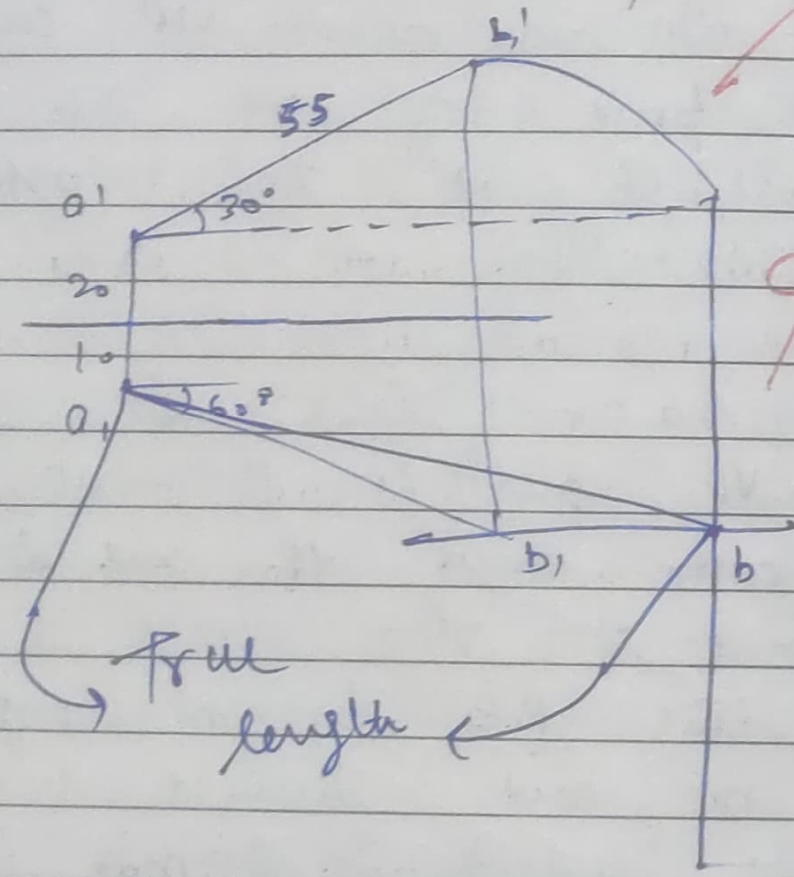 b₁'
55
a'
30°
20
10
60°
a₁
b₁
b
True
length